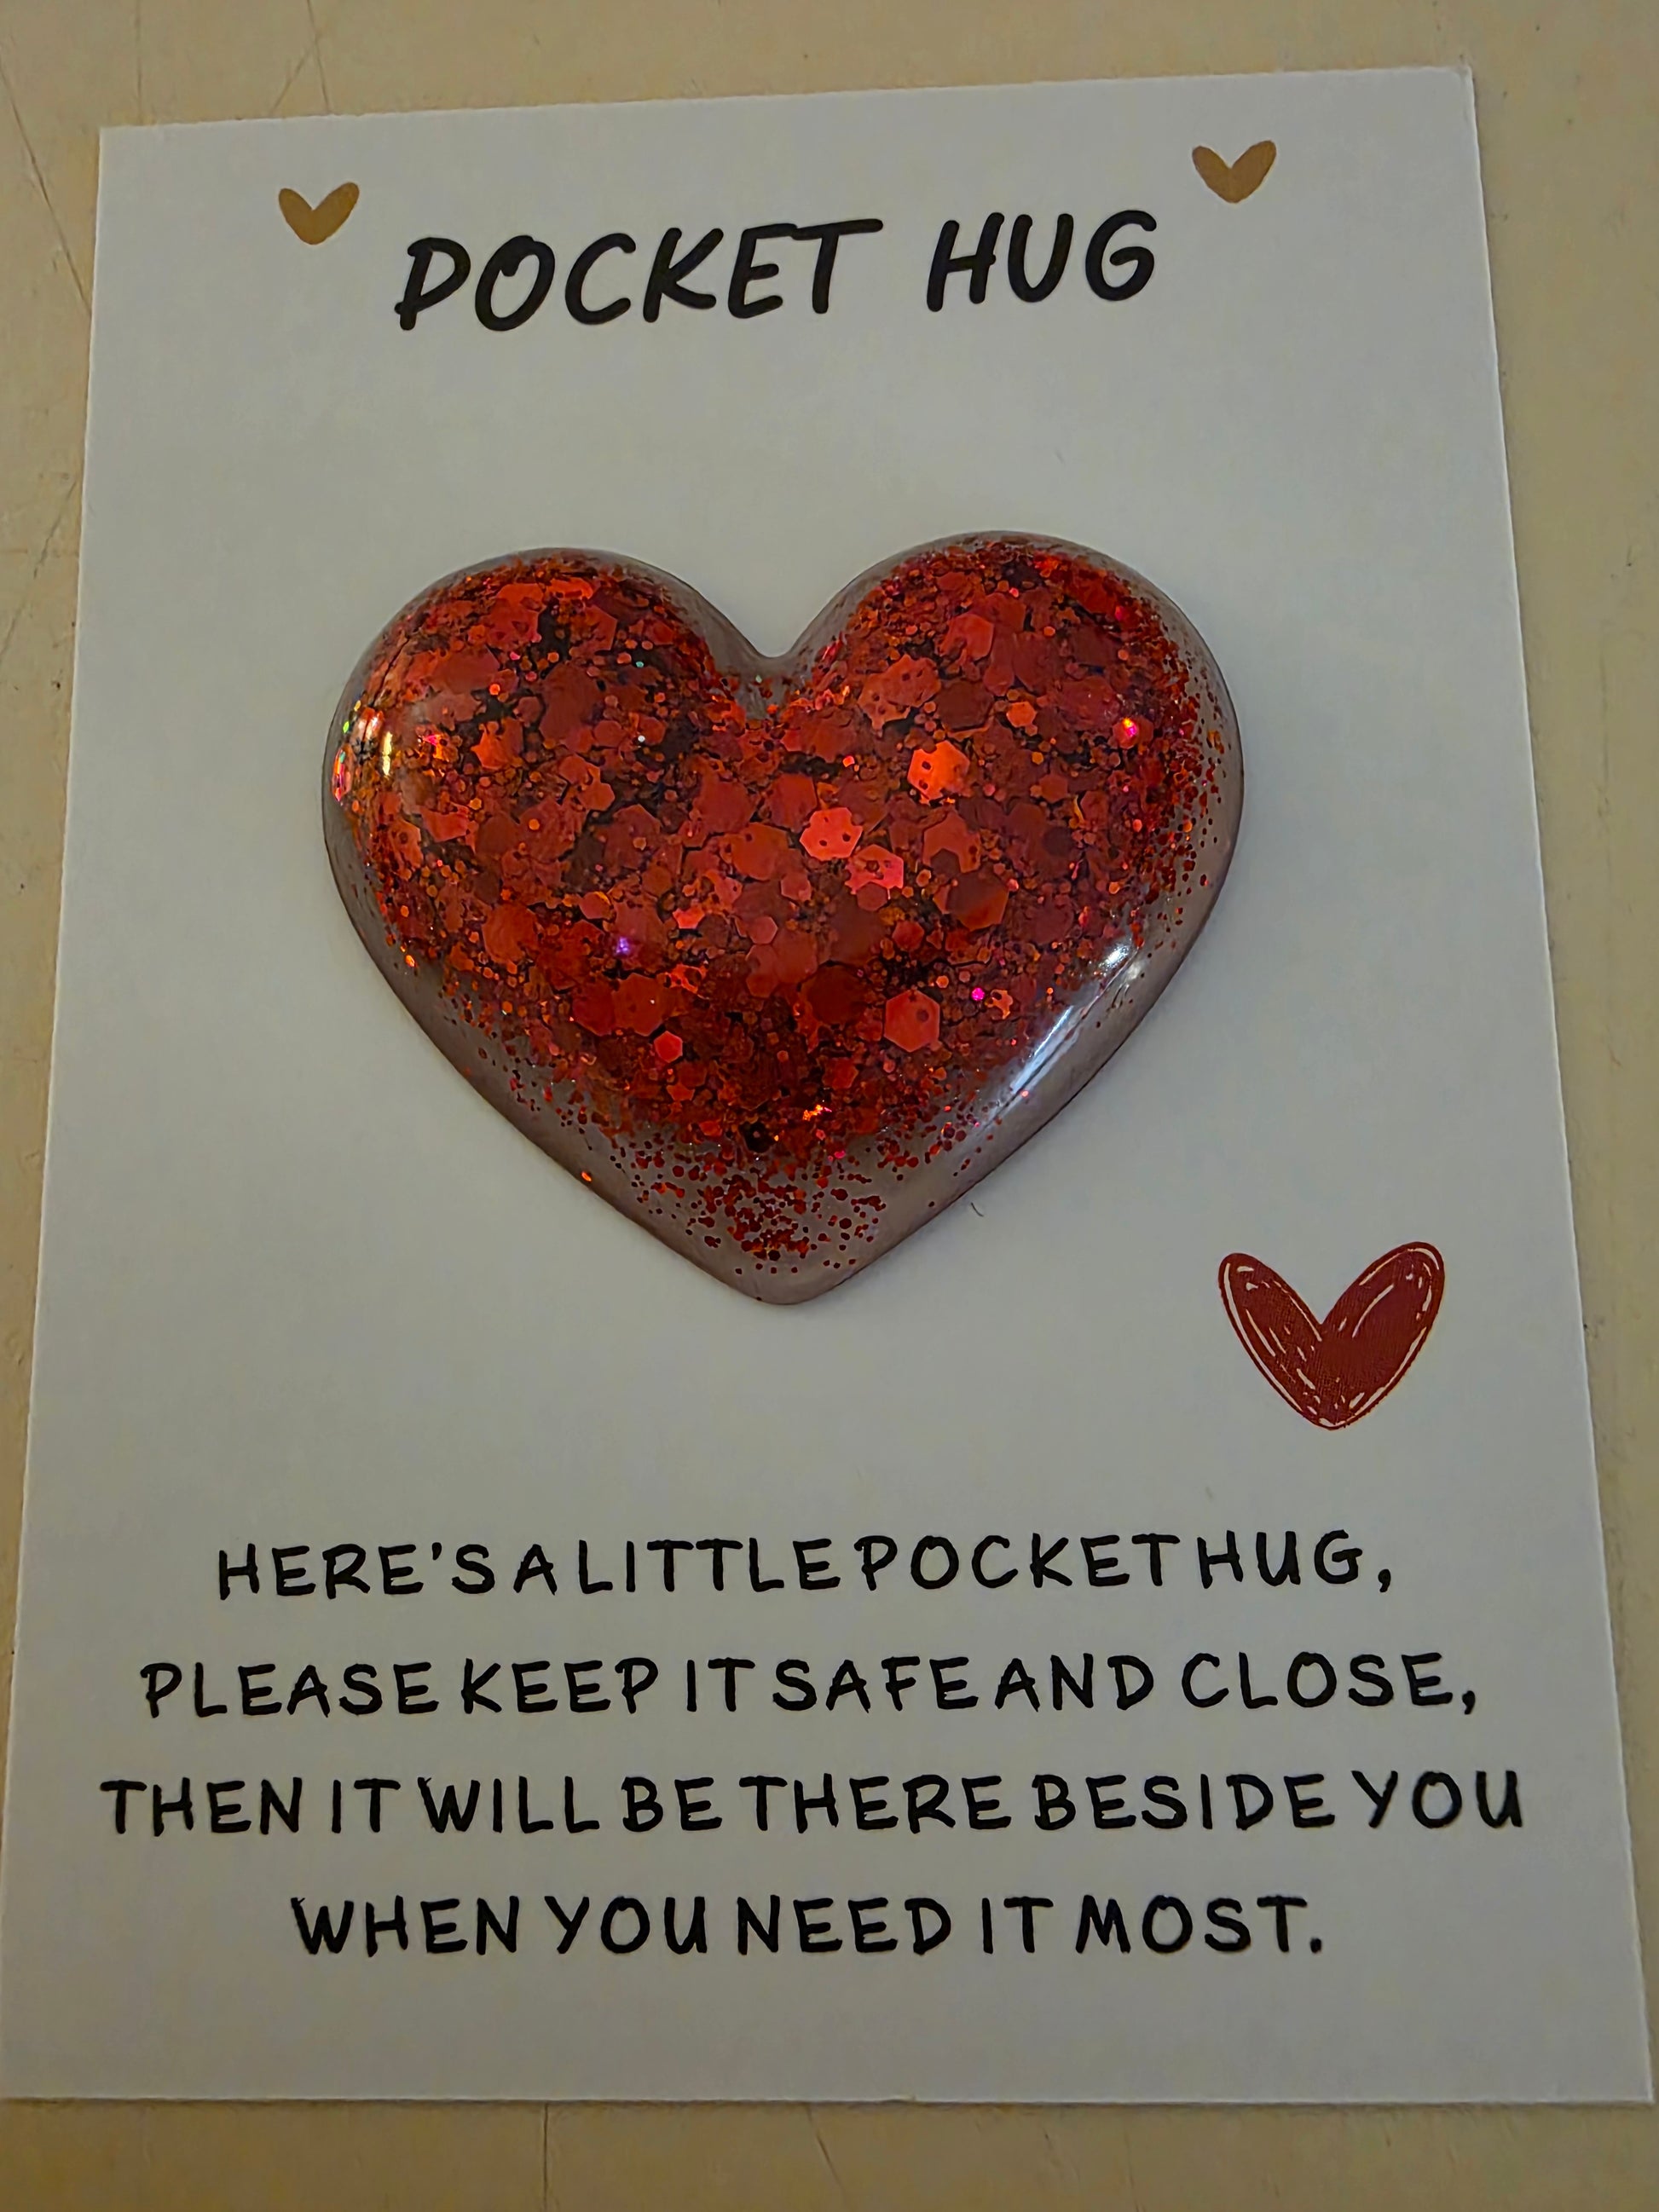 POCKET HUG
HERE'S A LITTLE POCKET HUG,
PLEASE KEEP IT SAFE AND CLOSE,
THEN IT WILL BE THERE BESIDE YOU
WHEN YOU NEED IT MOST.